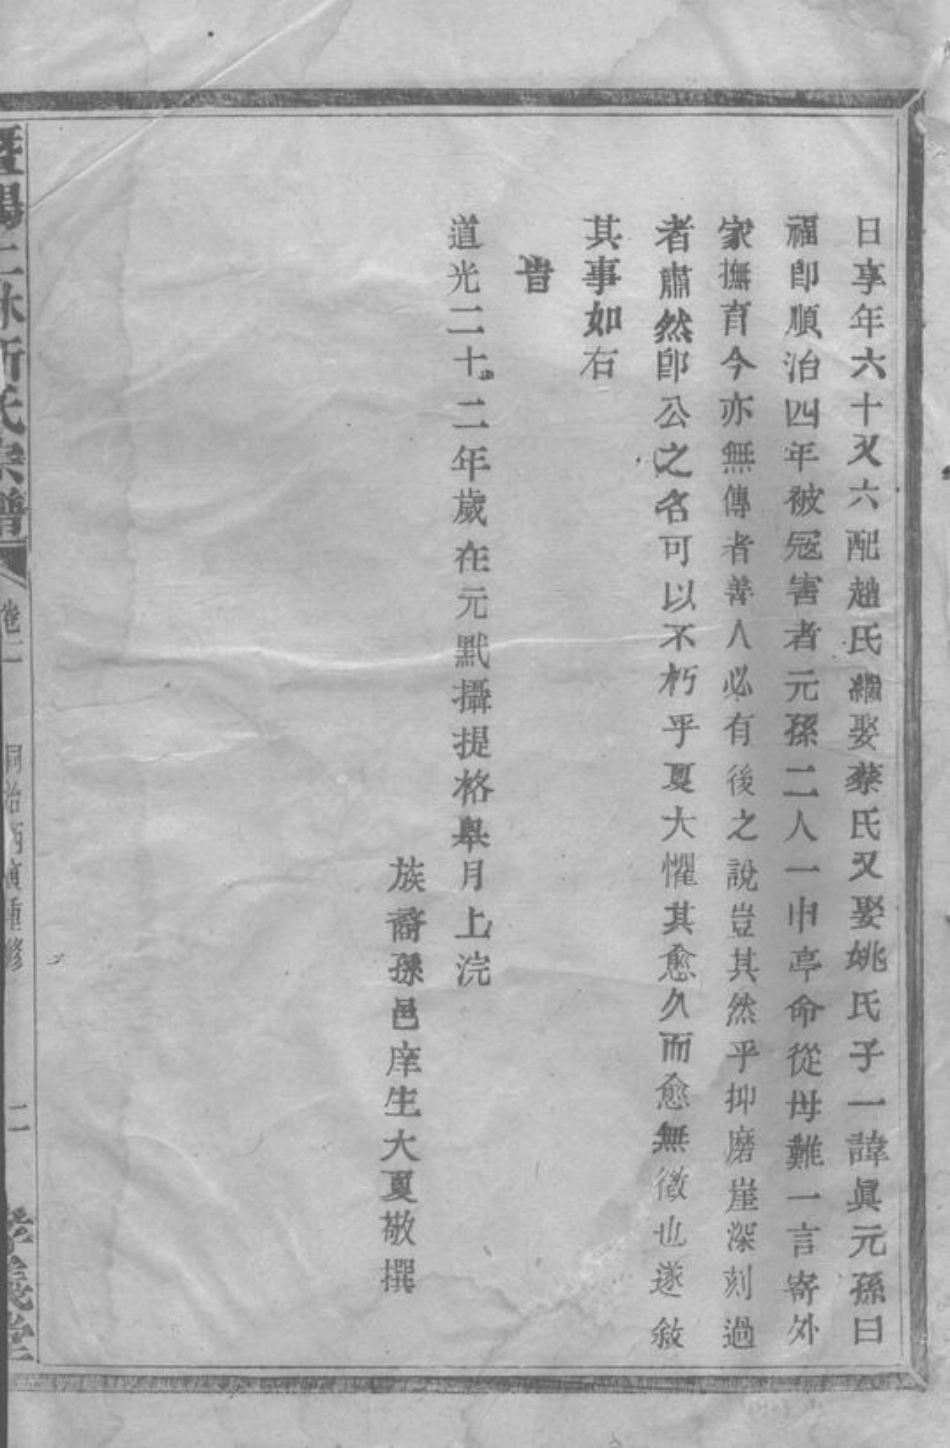 日享年六十又六配趙氏繼娶蔡氏又娶姚氏子一諱眞元孫曰
福卽順治四年被寇害者元孫二人一申亭命從母難一言寄外
家撫育今亦無傳者善人必有後之說豈其然乎抑磨崖深刻過
者肅然卽公之名可以不朽乎夏大懼其愈久而愈無徵也遂敍
其事如右
旹
道光二十二年歲在元黓攝提格辠月上浣
族裔孫邑庠生大夏敬撰
暨陽上林斯氏宗譜
卷二
同治丙寅重修
二
孝義堂